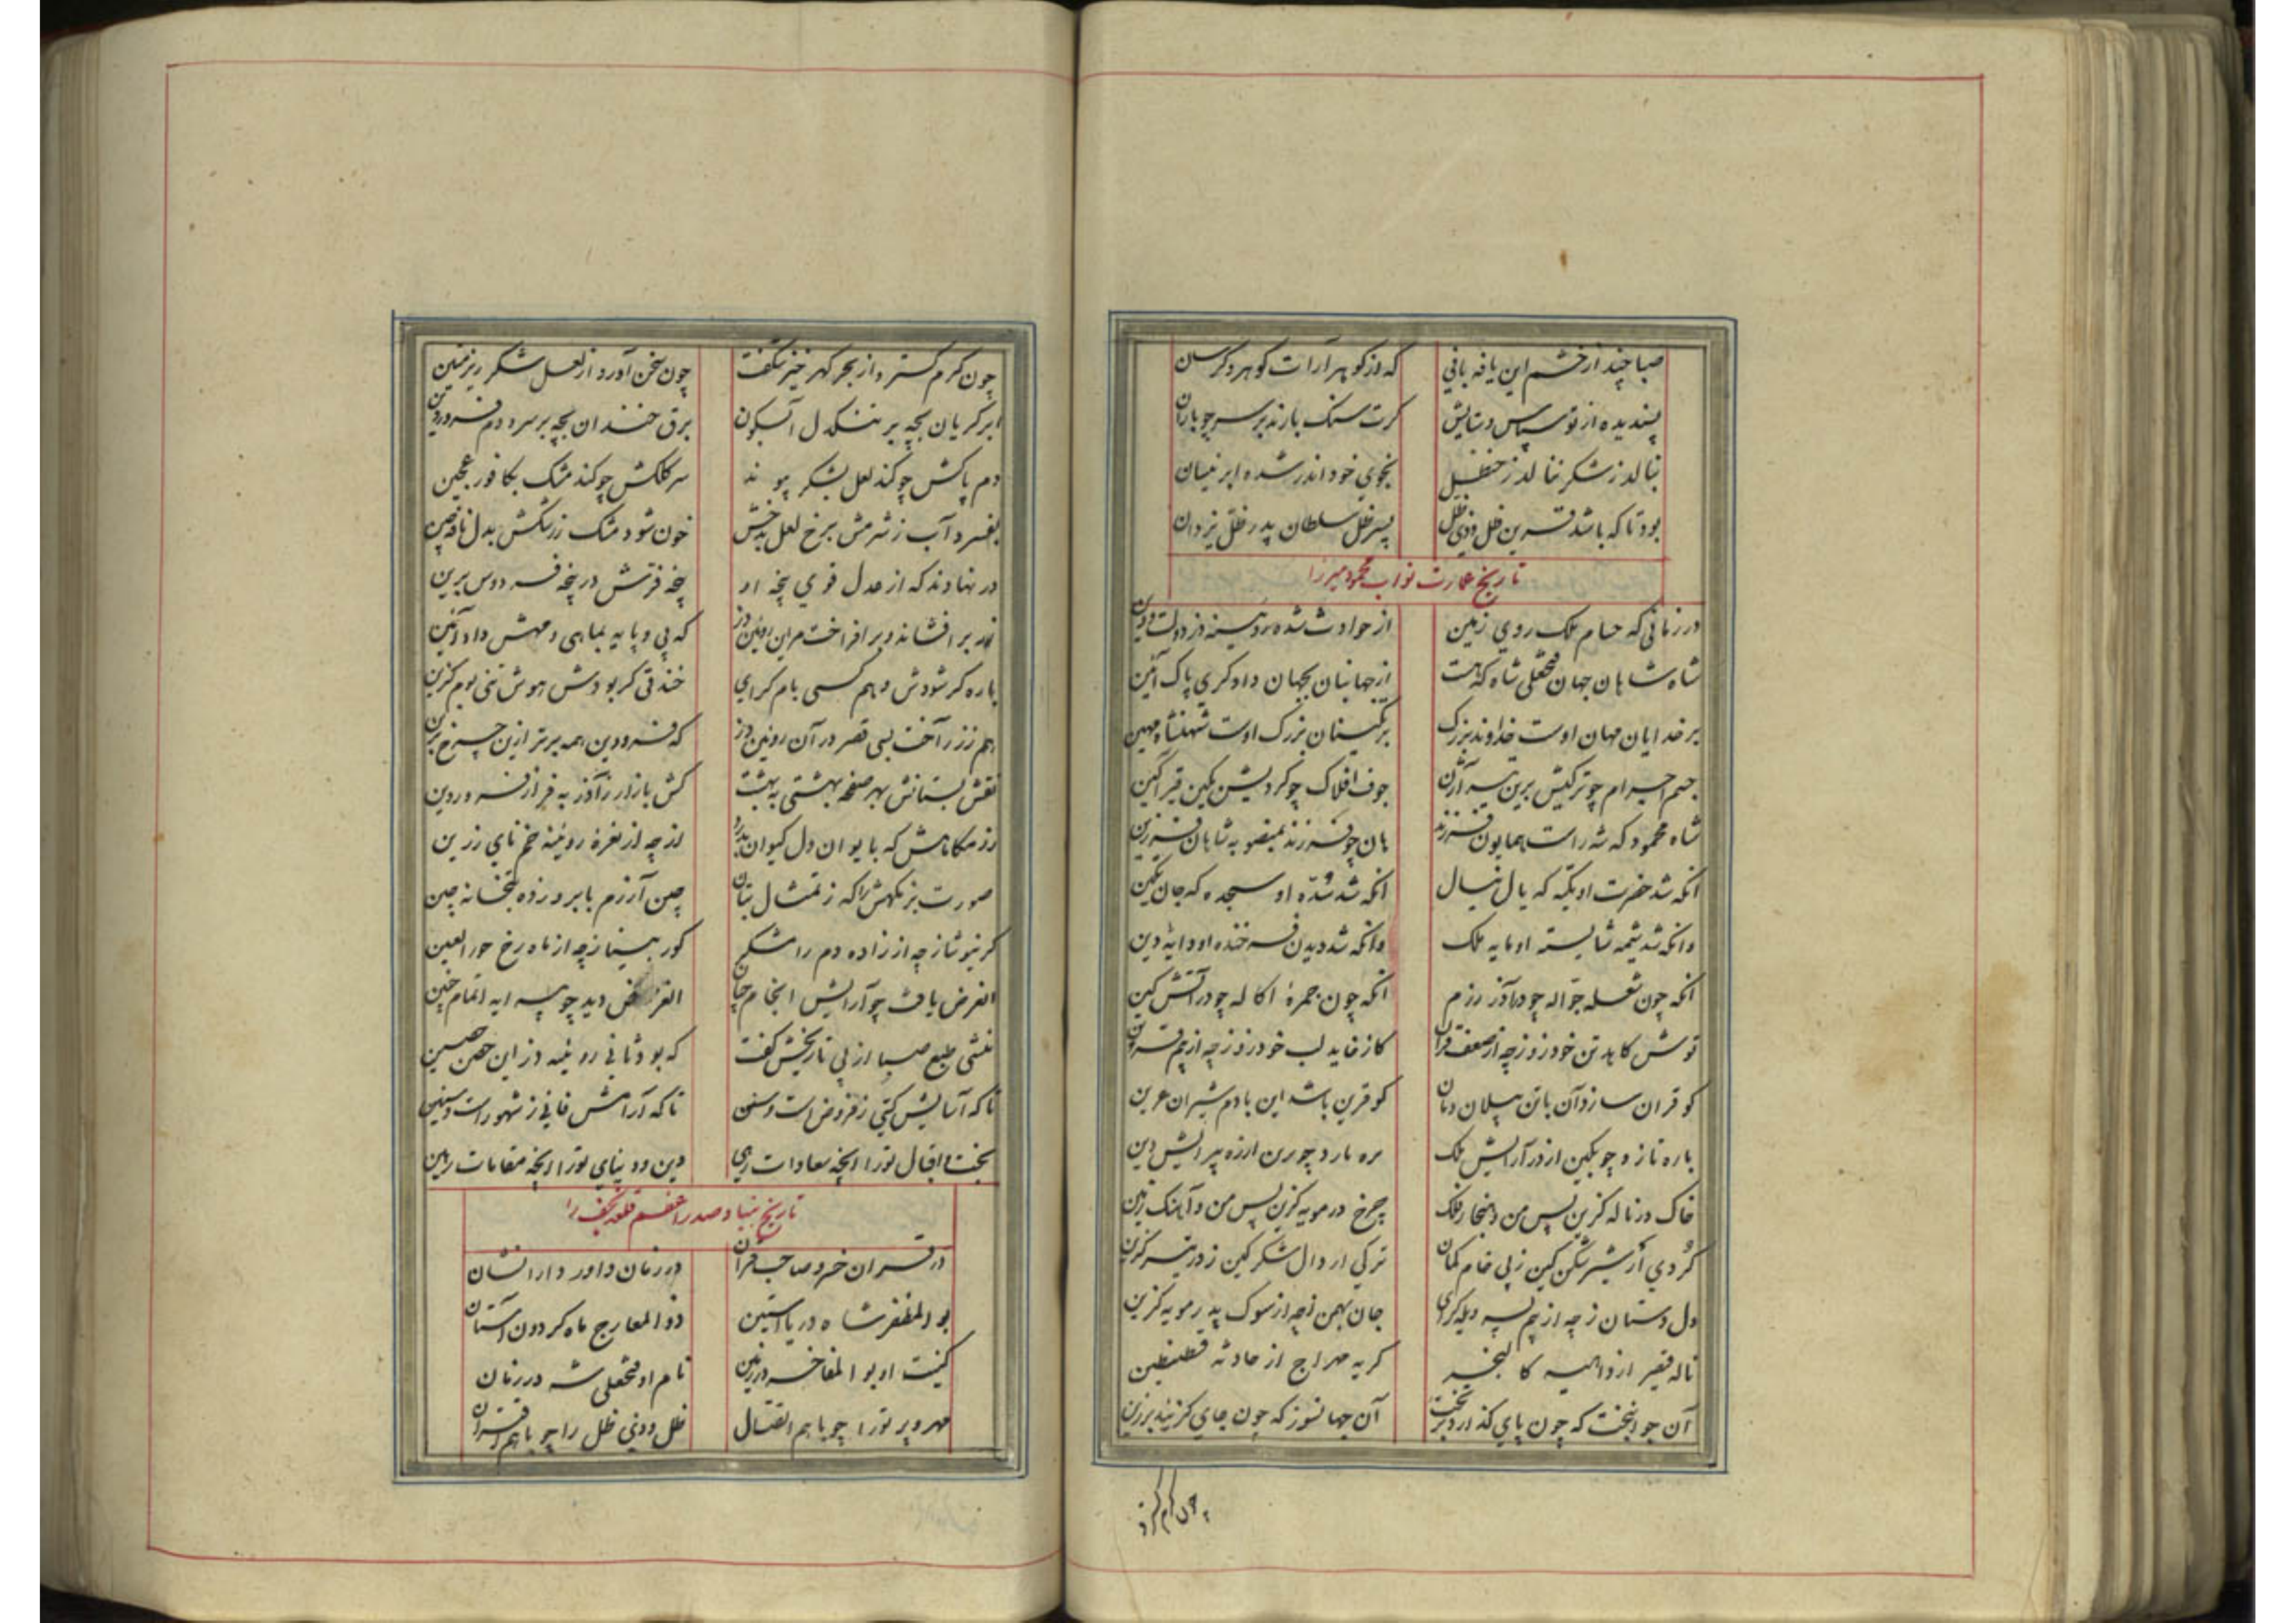 صبا چند از خشم این یافه بافی که دز کوهر آرات کوهر و کرسان
پسندیده از تو سپاس و ستایش کرت سنک بارند بر سر چو باران
ننالد ز شکر ننالد ز حنظل بخوی خود اندر شده ابر نیسان
بود تا که باشد قرین ظل وذی ظل پسر ظل سلطان پدر ظل یزدان
تاریخ عمارت نواب محمود میرزا
در زمانی که حسام ملک روی زمین از حوادث شده رویینه دز دولت و دین
شاه شاهان جهان فتحعلی شاه که هست از جهانبان بجهان دادگری پاک آئین
بر خدایان مهان اوست خداوند بزرک بزرک اوست شهنشاه مهین
جسم اجرام چو ترکیش برین جوف افلاک چو کردیش یکین قیرآگین
شاه محمود که شه راست همایون فرزند هان چو فرزند بمنصوبه شاهان فرزین
آنکه شد حضرت او تکیه که آنکه شد سده او سجده که جان تکین
وانکه شد شیمه شایسته او مایه ملک وانکه شد دیدن فرخنده او دایه دین
آنکه چون شعله جواله چو در آذر رزم آنکه چون جمره اکاله چو در آتش کین
توسش کاهد تن خود روز چه از ضعف قران کاز خاید لب خود روز چه از بیم قرین
کو قران سازد آن با تن پیلان دمان کو قرین باشد این با دم شیران عرین
باره تازد چو بکین از در آرایش ملک بره بارد چو برین ازره پیرایش دین
خاک در ناله کزین پس من و هنجار فلک چرخ در مویه کزین پس من و آهنک زمین
کردی از شیر شکن کین ز پی خام کمان ترکی ار دال شکر کین ز در تیر کزین
دل دستان ز چه از بیم پسر ویله کرای جان بهمن ز چه از سوک پدر مویه کزین
ناله قیصر از داهیه کالنجر کریه مهراج از حادثه قسطنطین
آن جوانبخت که چون پای کذارد بر تخت آن جهانسوز که چون جای کزیند بر زین
چون کرم کسترد
چون کرم کسترد از بحر کهر خیز شکفت چون سخن آورد از لعل شکر ریز متین
ابر کریان بچه بر تنکدل آبسکون برق خندان بچه بر سرد دم فروردین
دم پاکش چو کند لعل بشکر پیوند سر کلکش چو کند مشک بکافور عجین
بفسرد آب ز شرمش برخ لعل بدخش خون شود مشک ز رشکش بدل نافه چین
در نهاوند که از عدل قوی پنجه او فردوس برین
زر برافشاند و برافراخت مر این رویین دز که پی و پایه بماهی و مهش داد آئین
باره کر شودش وهم کسی بام کرای خندقی کر بودش هوش تنی بوم کزین
هم ز زر آخت بسی قصر در آن رویین دز که فرودین همه برتر ازین چرخ برین
نقش بستانش بهر صفحه بهشتی به بهشت کش بازار ز آذر به فراز فروردین
رزمکاهش که بایوان دل کیوان بدرد از چه از نعره رویینه خم نای زرین
صورت بزمکهش را که ز تمثال بتان چین آزرم بابرو زده بتخانه چین
کر نیوشاز چه از زاده دم رامشکر کور بیناز چه از ماه رخ حور العین
الغرض یافت چو آرایش انجام چنان الغرض دید چو پیرایه اتمام چنین
منشی طبع صبا از پی تاریخش کفت که بود ثانی رویینه دز این حصن حصین
تا که آسایش کیتی ز فروض است و سنن تا که آرامش فانی ز شهور است و سنین
بخت و اقبال تو را آنچه سعادات رهی دین و دنیای تو را آنچه مقامات رهین
تاریخ بنیاد صدر اعظم قلعه نجف را
در قران خسرو صاحب قران در زمان داور دارا نشان
بوالمظفر شاه دریا آستین ذوالمعارج ماه کردون آستان
کنیت او بوالمفاخر در زمین نام او فتحعلی شه در زمان
مهر و پرتو را چو با هم اتصال ظل و ذی ظل را چو با هم اقتران